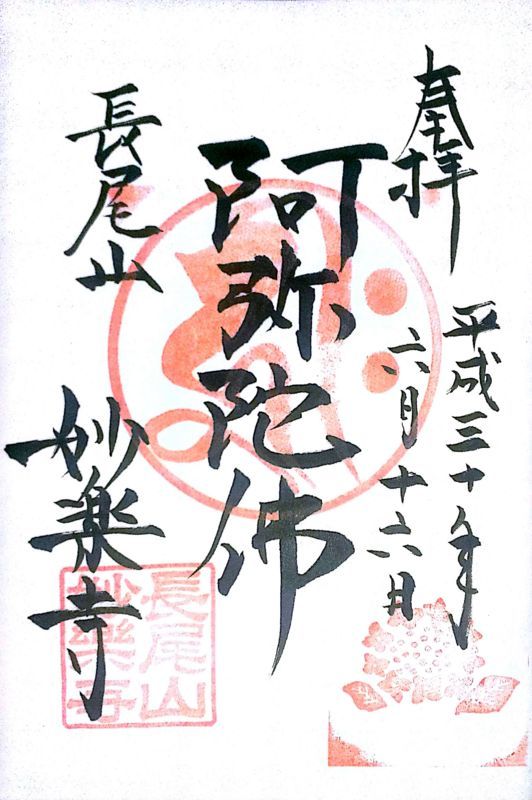 奉拝
平成三十年
六月十六日
阿弥陀佛
長尾山
妙楽寺
長尾山
妙樂寺